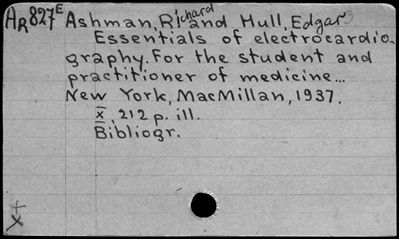 AR827E Ashman, Richard and Hull, Edgar
Essentials of electrocardio-
graphy. For the student and
practitioner of medicine...
New York, MacMillan, 1937.
x, 212 p. ill.
Bibliogr.
+
x